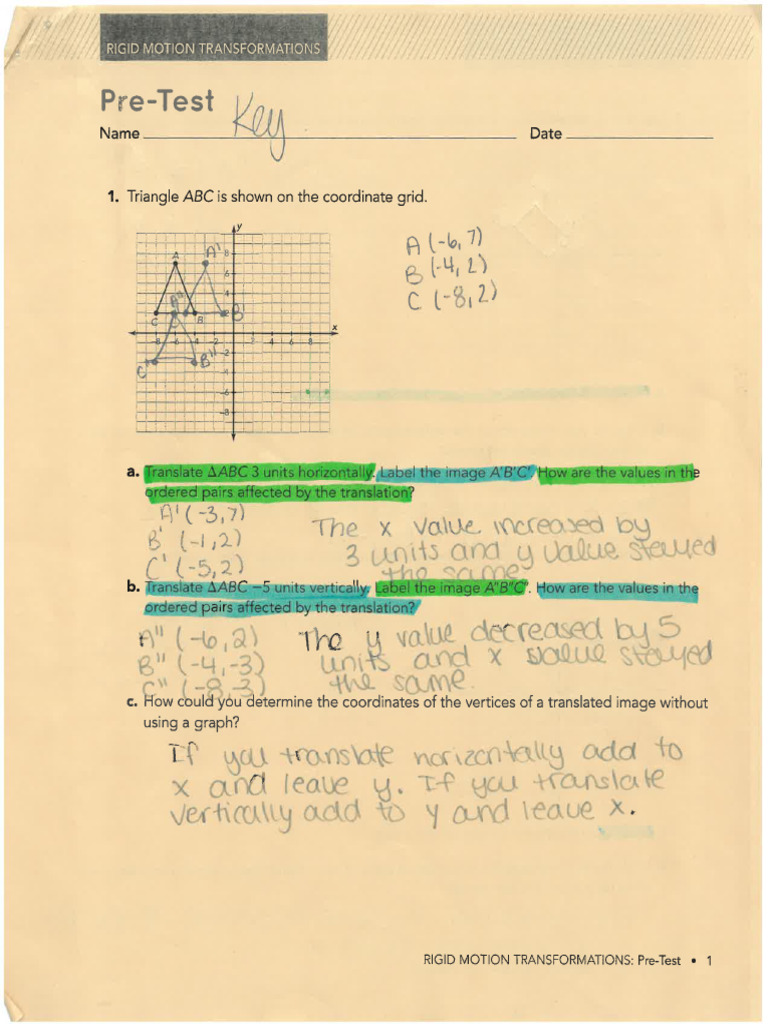 RIGID MOTION TRANSFORMATIONS
Pre-Test
Key
Name Date
1. Triangle ABC is shown on the coordinate grid.
A (-6, 7)
B (-4, 2)
C (-8, 2)
y
A A' 8
6
4
A''
C B B'
x
-8 -6 -4 -2 2 4 6 8
-2
C'' B''
-4
-6
-8
a. Translate △ABC 3 units horizontally. Label the image A'B'C'. How are the values in the
ordered pairs affected by the translation?
A' (-3, 7)
B' (-1, 2)
C' (-5, 2)
The x value increased by
3 units and y value stayed
the same
b. Translate △ABC −5 units vertically. Label the image A"B"C". How are the values in the
ordered pairs affected by the translation?
A'' (-6, 2)
B'' (-4, -3)
C'' (-8, -3)
The y value decreased by 5
units and x value stayed
the same.
c. How could you determine the coordinates of the vertices of a translated image without
using a graph?
If you translate horizontally add to
x and leave y. If you translate
vertically add to y and leave x.
RIGID MOTION TRANSFORMATIONS: Pre-Test • 1